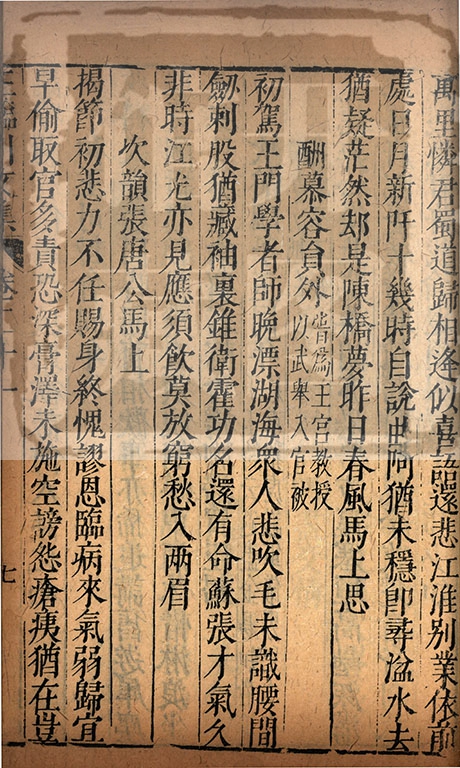 萬里憐君蜀道歸相逢似喜語還悲江淮別業依前
處日月新阡十幾時自說曲阿猶未穩即尋湓水去
猶疑茫然却是陳橋夢昨日春風馬上思
酬慕容員外昔爲王宮教授以武舉入官被
初駕王門學者師晚漂湖海衆人悲吹毛未識腰間
劒刺股猶藏袖裏錐衛霍功名還有命蘇張才氣久
非時江尤亦見應須飲莫放窮愁入兩眉
次韻張唐公馬上
揭節初悲力不任賜身終愧謬恩臨病來氣弱歸宜
早偷取官多責恐深膏澤未施空謗怨瘡痍猶在豈
七